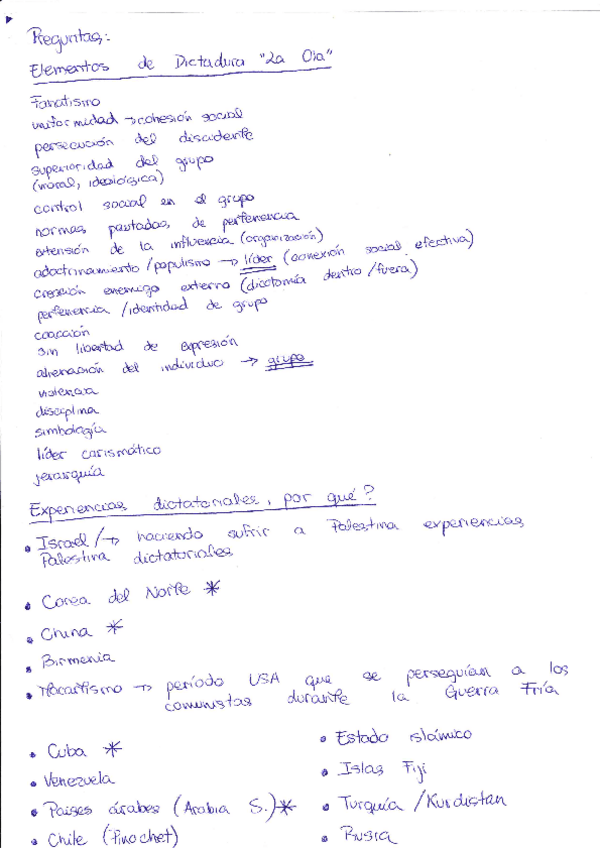 Preguntas:
Elementos de Dictadura "La Ola"
Fanatismo
uniformidad → cohesión social
persecución del disidente
superioridad del grupo
(moral, ideológica)
control social en el grupo
normas pautadas, de pertenencia
extensión de la influencia (organización)
adoctrinamiento / populismo → líder (conexión social efectiva)
creación enemigo externo (dicotomía dentro / fuera)
pertenencia / identidad de grupo
coacción
sin libertad de expresión
alienación del individuo → grupo
violencia
disciplina
simbología
líder carismático
jerarquía
Experiencias dictatoriales, por qué?
• Israel / → haciendo sufrir a Palestina experiencias
Palestina dictatoriales
• Corea del Norte *
• China *
• Birmenia
• Macartismo → período USA que se perseguían a los
comunistas durante la Guerra Fría
• Cuba *
• Venezuela
• Países árabes (Arabia S.) *
• Chile (Pinochet)
• Estado islámico
• Islas Fiji
• Turquía / Kurdistan
• Rusia